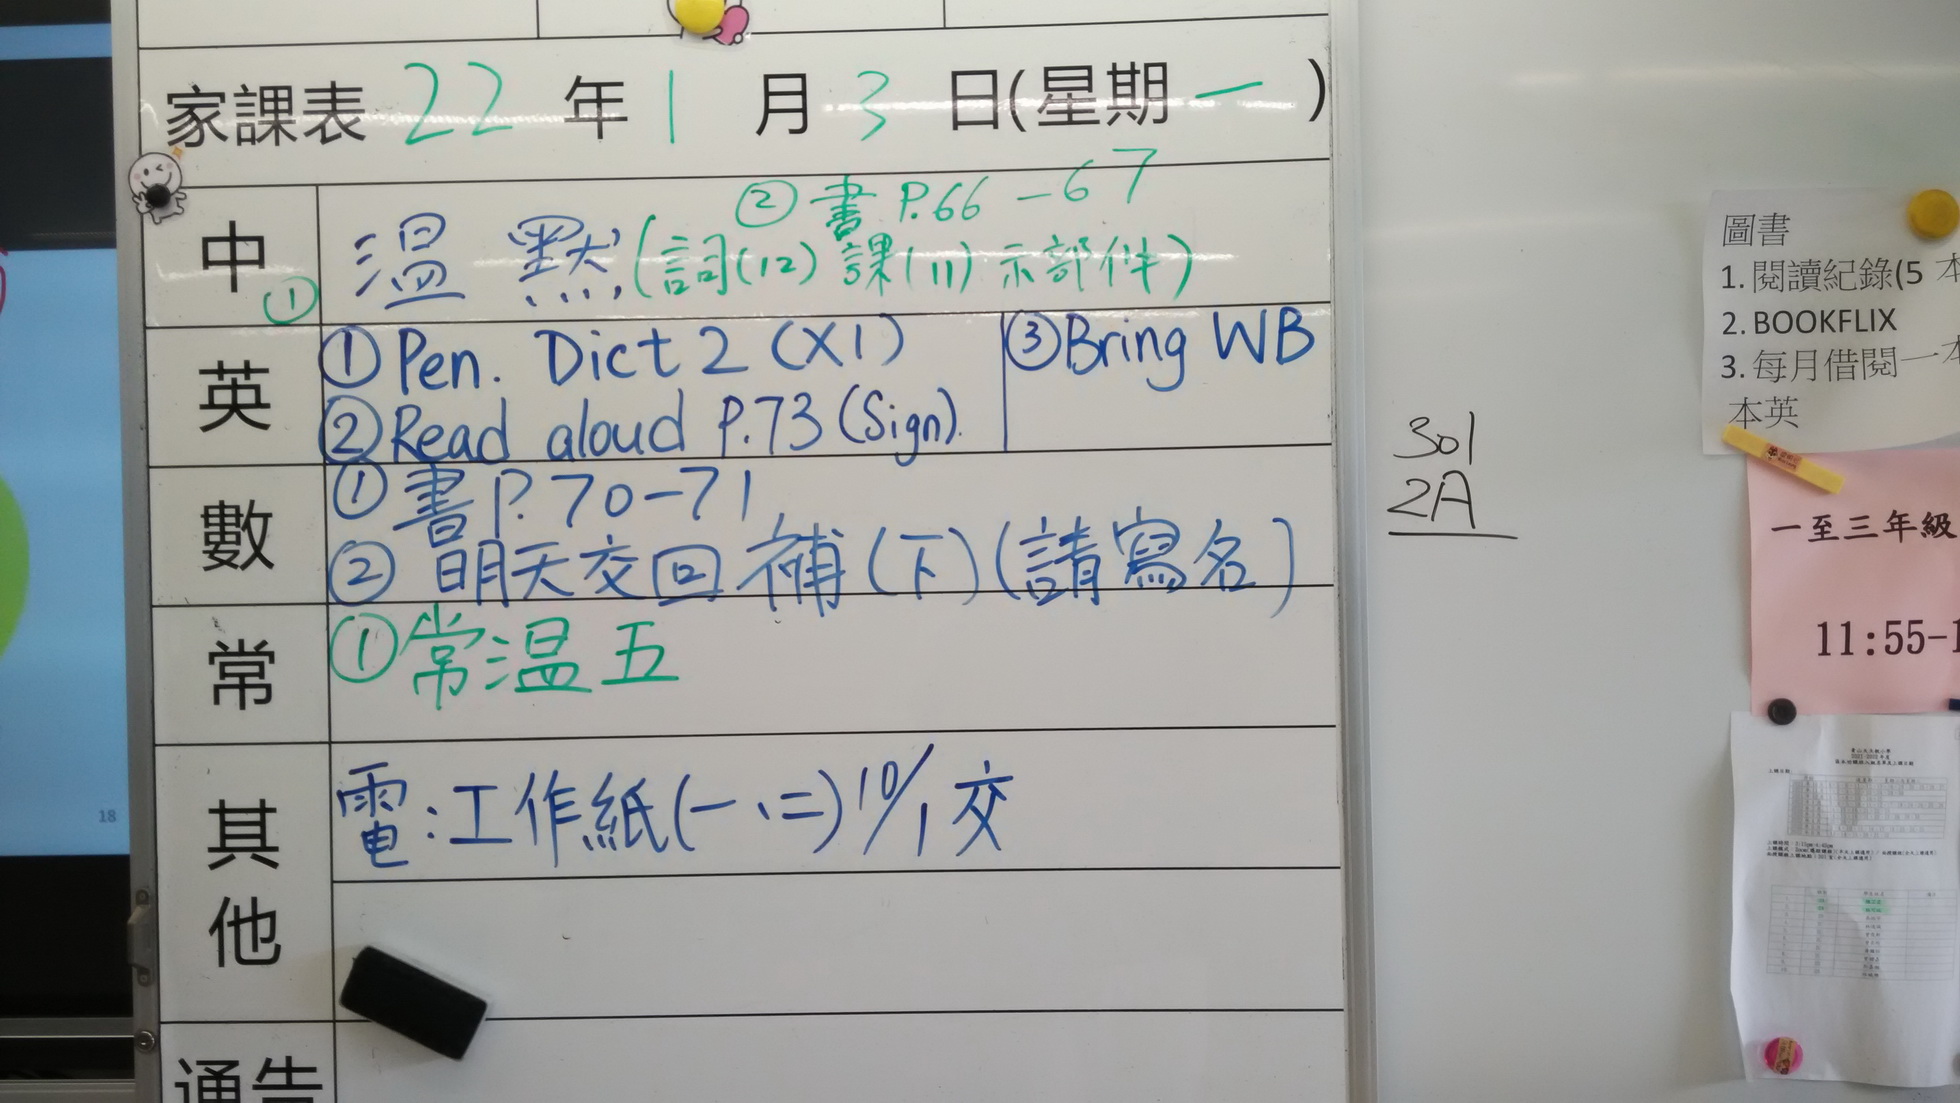 家課表 22 年 1 月 3 日(星期一)
中 ① 溫默,(詞(12)課(11)示部件)
② 書 P.66-67
英 ① Pen. Dict 2 (X1)
② Read aloud P.73 (Sign).
③ Bring WB
數 ① 書 P.70-71
② 明天交回補(下)(請寫名)
常 ① 常溫五
其他 電:工作紙(一、二) 10/1 交
通告
18
301
2A
圖書
1. 閱讀紀錄(5 本
2. BOOKFLIX
3. 每月借閱一本
本英
一至三年級
11:55-1